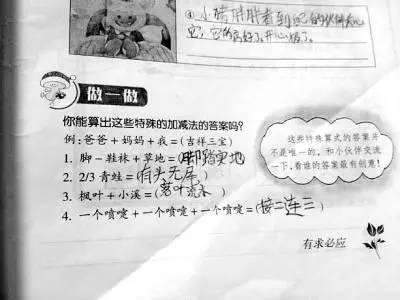 ④小猪胖胖看到自己的伙伴关心
它，它的病好了，开心极了。
做一做
你能算出这些特殊的加减法的答案吗?
例:爸爸+妈妈+我=(吉祥三宝)
1. 脚-鞋袜+草地=(脚踏实地)
2. 2/3 青蛙=(有头无尾)
3. 枫叶+小溪=(落叶流水)
4. 一个喷嚏+一个喷嚏+一个喷嚏=(接二连三)
这些特殊算式的答案并
不是唯一的。和小伙伴交流
一下,看谁的答案最有创意!
有求必应